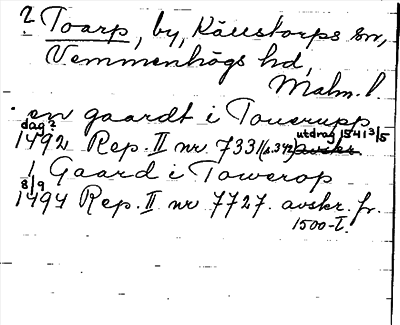 ? Toarp, by, Källstorps sn,
Vemmenhögs hd,
Malm. l
. en gaardt i Touerupp
dag?
1492 Rep. II nr. 7331 (s. 342) utdrag 1541 3/5
1 Gaard i Towerop
8/9
1494 Rep. II nr 7727. avskr. fr.
1500-t.